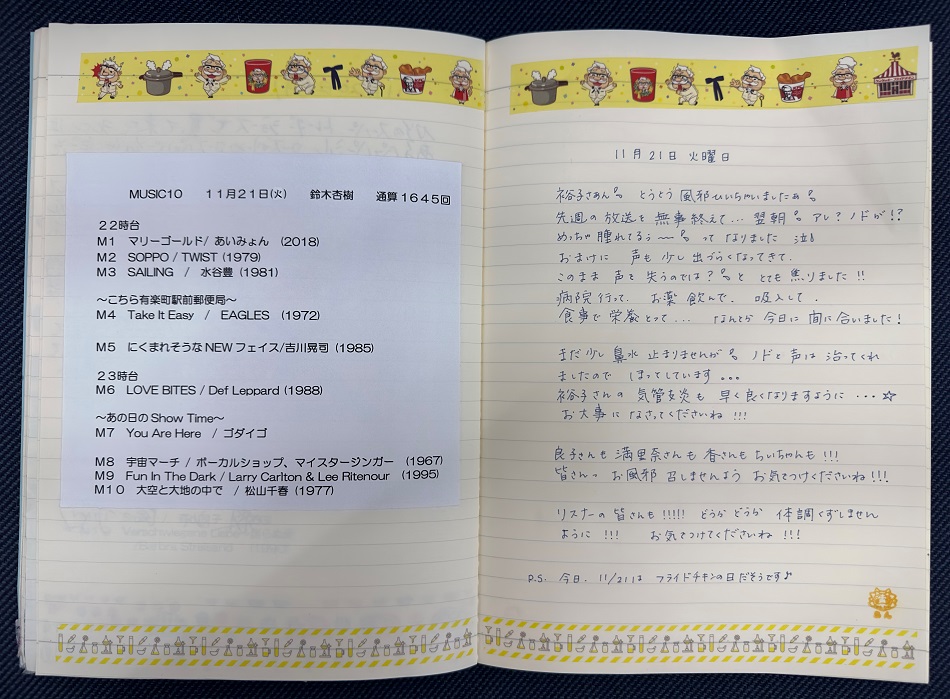 MUSIC10 11月21日(火) 鈴木杏樹 通算1645回
22時台
M1 マリーゴールド/ あいみょん (2018)
M2 SOPPO / TWIST (1979)
M3 SAILING / 水谷豊 (1981)
～こちら有楽町駅前郵便局～
M4 Take It Easy / EAGLES (1972)
M5 にくまれそうなNEWフェイス/吉川晃司 (1985)
23時台
M6 LOVE BITES / Def Leppard (1988)
～あの日のShow Time～
M7 You Are Here / ゴダイゴ
M8 宇宙マーチ / ボーカルショップ、マイスタージンガー (1967)
M9 Fun In The Dark / Larry Carlton & Lee Ritenour (1995)
M10 大空と大地の中で / 松山千春 (1977)
11月21日 火曜日
裕子さぁん とうとう 風邪ひいちゃいましたぁ
先週の 放送を 無事終えて... 翌朝 アレ? ノドが!?
めっちゃ 腫れてるぅ〜 って なりました 泣
おまけに 声も 少し 出づらくなってきて.
このまま 声を 失うのでは? と とても 焦りました!!
病院行って. お薬 飲んで. 吸入して.
食事で 栄養とって... なんとか 今日に 間に合いました!
まだ少し 鼻水 止まりませんが ノドと声は 治ってくれ
ましたので ほってしています...
裕子さんの 気管支炎も 早く良くなりますように...☆
お大事に なさってくださいね!!!
良子さんも 満里奈さんも 香さんも ちぃちゃんも!!!
皆さんっ お風邪 召しませんよう お気をつけくださいね!!!
リスナーの 皆さんも!!!!! どうか どうか 体調くずしません
ように!!! お気をつけてくださいね!!!
P.S. 今日. 11/21は フライドチキンの日だそうです♪